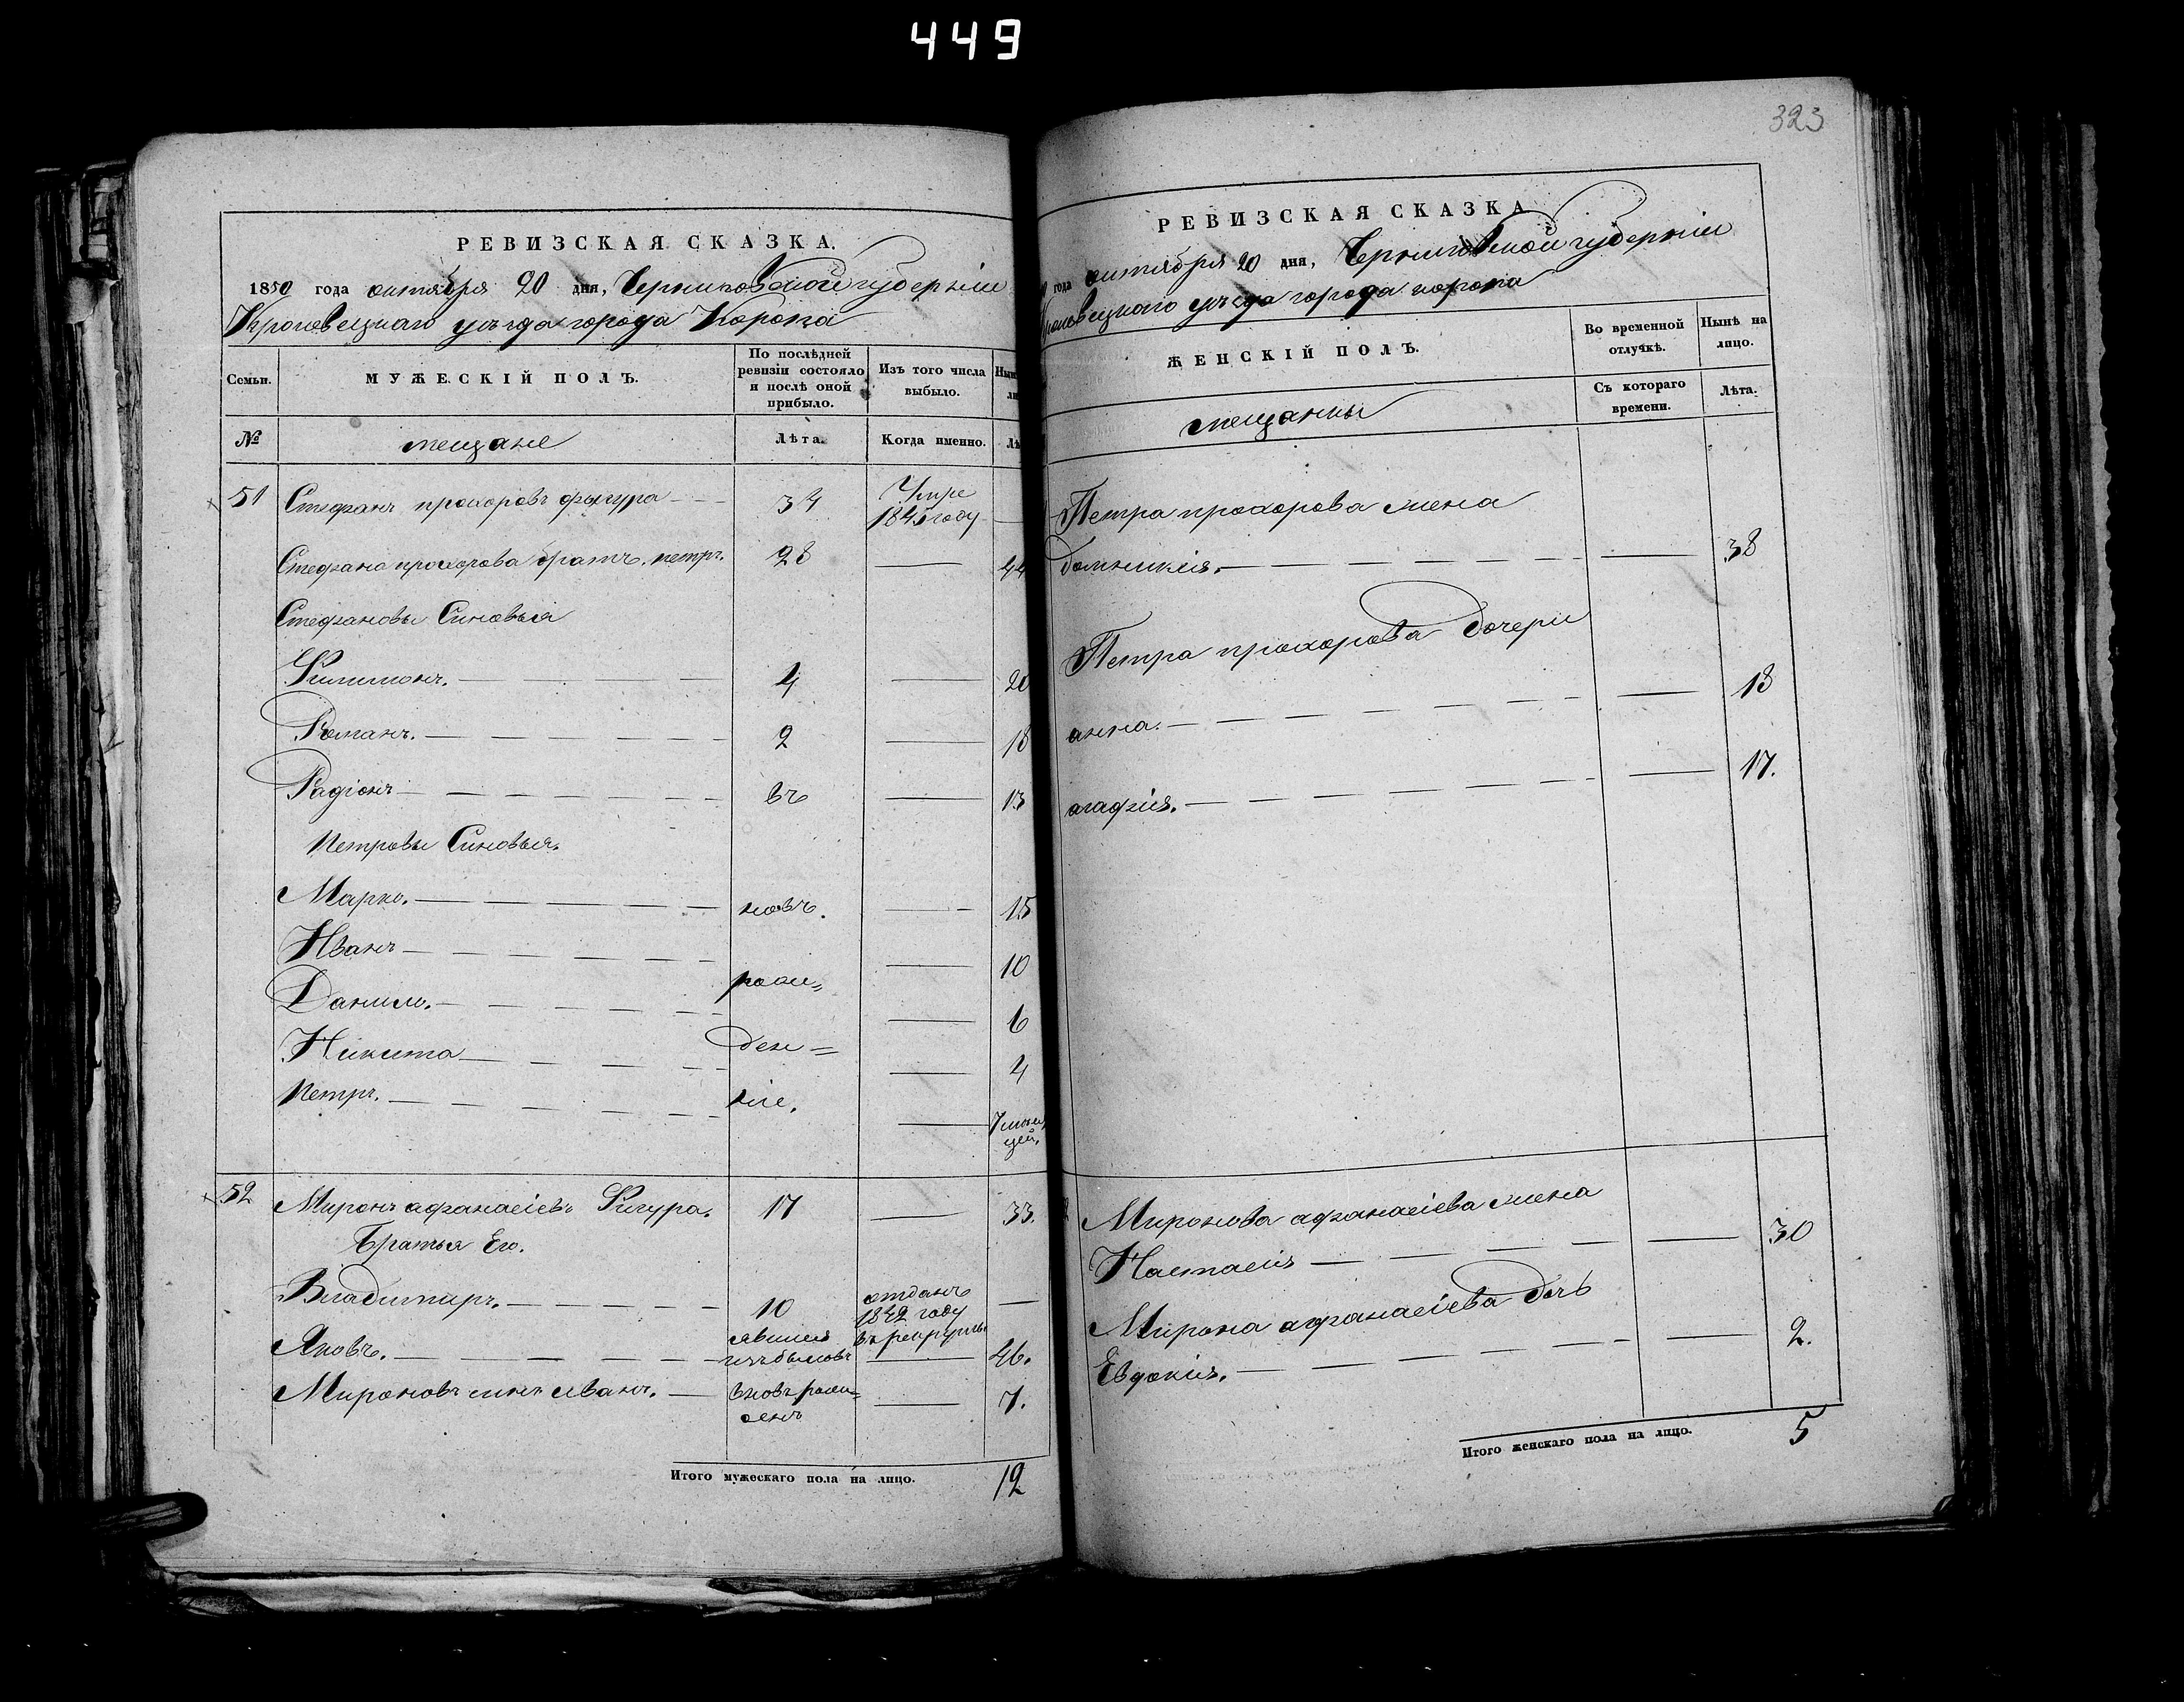 449
РЕВИЗСКАЯ СКАЗКА.
1850 года октября 20 дня, Черниговской губерніи
Кролевецкаго уезда города Коропа
Семьи.
МУЖЕСКІЙ ПОЛЪ.
По послѣдней
ревизіи состояло
и послѣ оной
прибыло.
Изъ того числа
выбыло.
№
мещане
Лѣта.
Когда именно.
51 Стефанъ прохоровъ фыгура 34 Умре
1845 году
Стефана прохорова братъ. петръ. 28 44
Стефановы Синовья
Филимонъ. 4 20
Романъ. 2 18
Радіонъ въ 13
Петровы Синовья.
Марко. новъ. 15
Иванъ 10
Данило. рож= 6
Никита ден= 4
Петръ. ніе. 7 меся
цей.
52 Миронъ афанасіевъ Фигура. 17 33.
Братья Его.
Владимиръ. 10 отданъ
1842 году
в рекруты.
Яковъ. явился
изъ беговъ 46.
Мироновъ синъ иванъ. вновь рож=
денъ 7.
Итого мужескаго пола на лицо. 12
323
РЕВИЗСКАЯ СКАЗКА
года октября 20 дня, Черниговской губерніи
уезда города коропа
ЖЕНСКІЙ ПОЛЪ.
Во временной
отлучкѣ.
Нынѣ на
лицо.
мещанки
Съ котораго
времени.
Лѣта.
Петра прохорова жена
домникия. 38
Петра прохорова дочери
анна. 18
агафия. 17.
Миронова афанасіева жена
Настасия 30
Мирона афанасіева дочь
Евдокия. 2.
Итого женскаго пола на лицо. 5